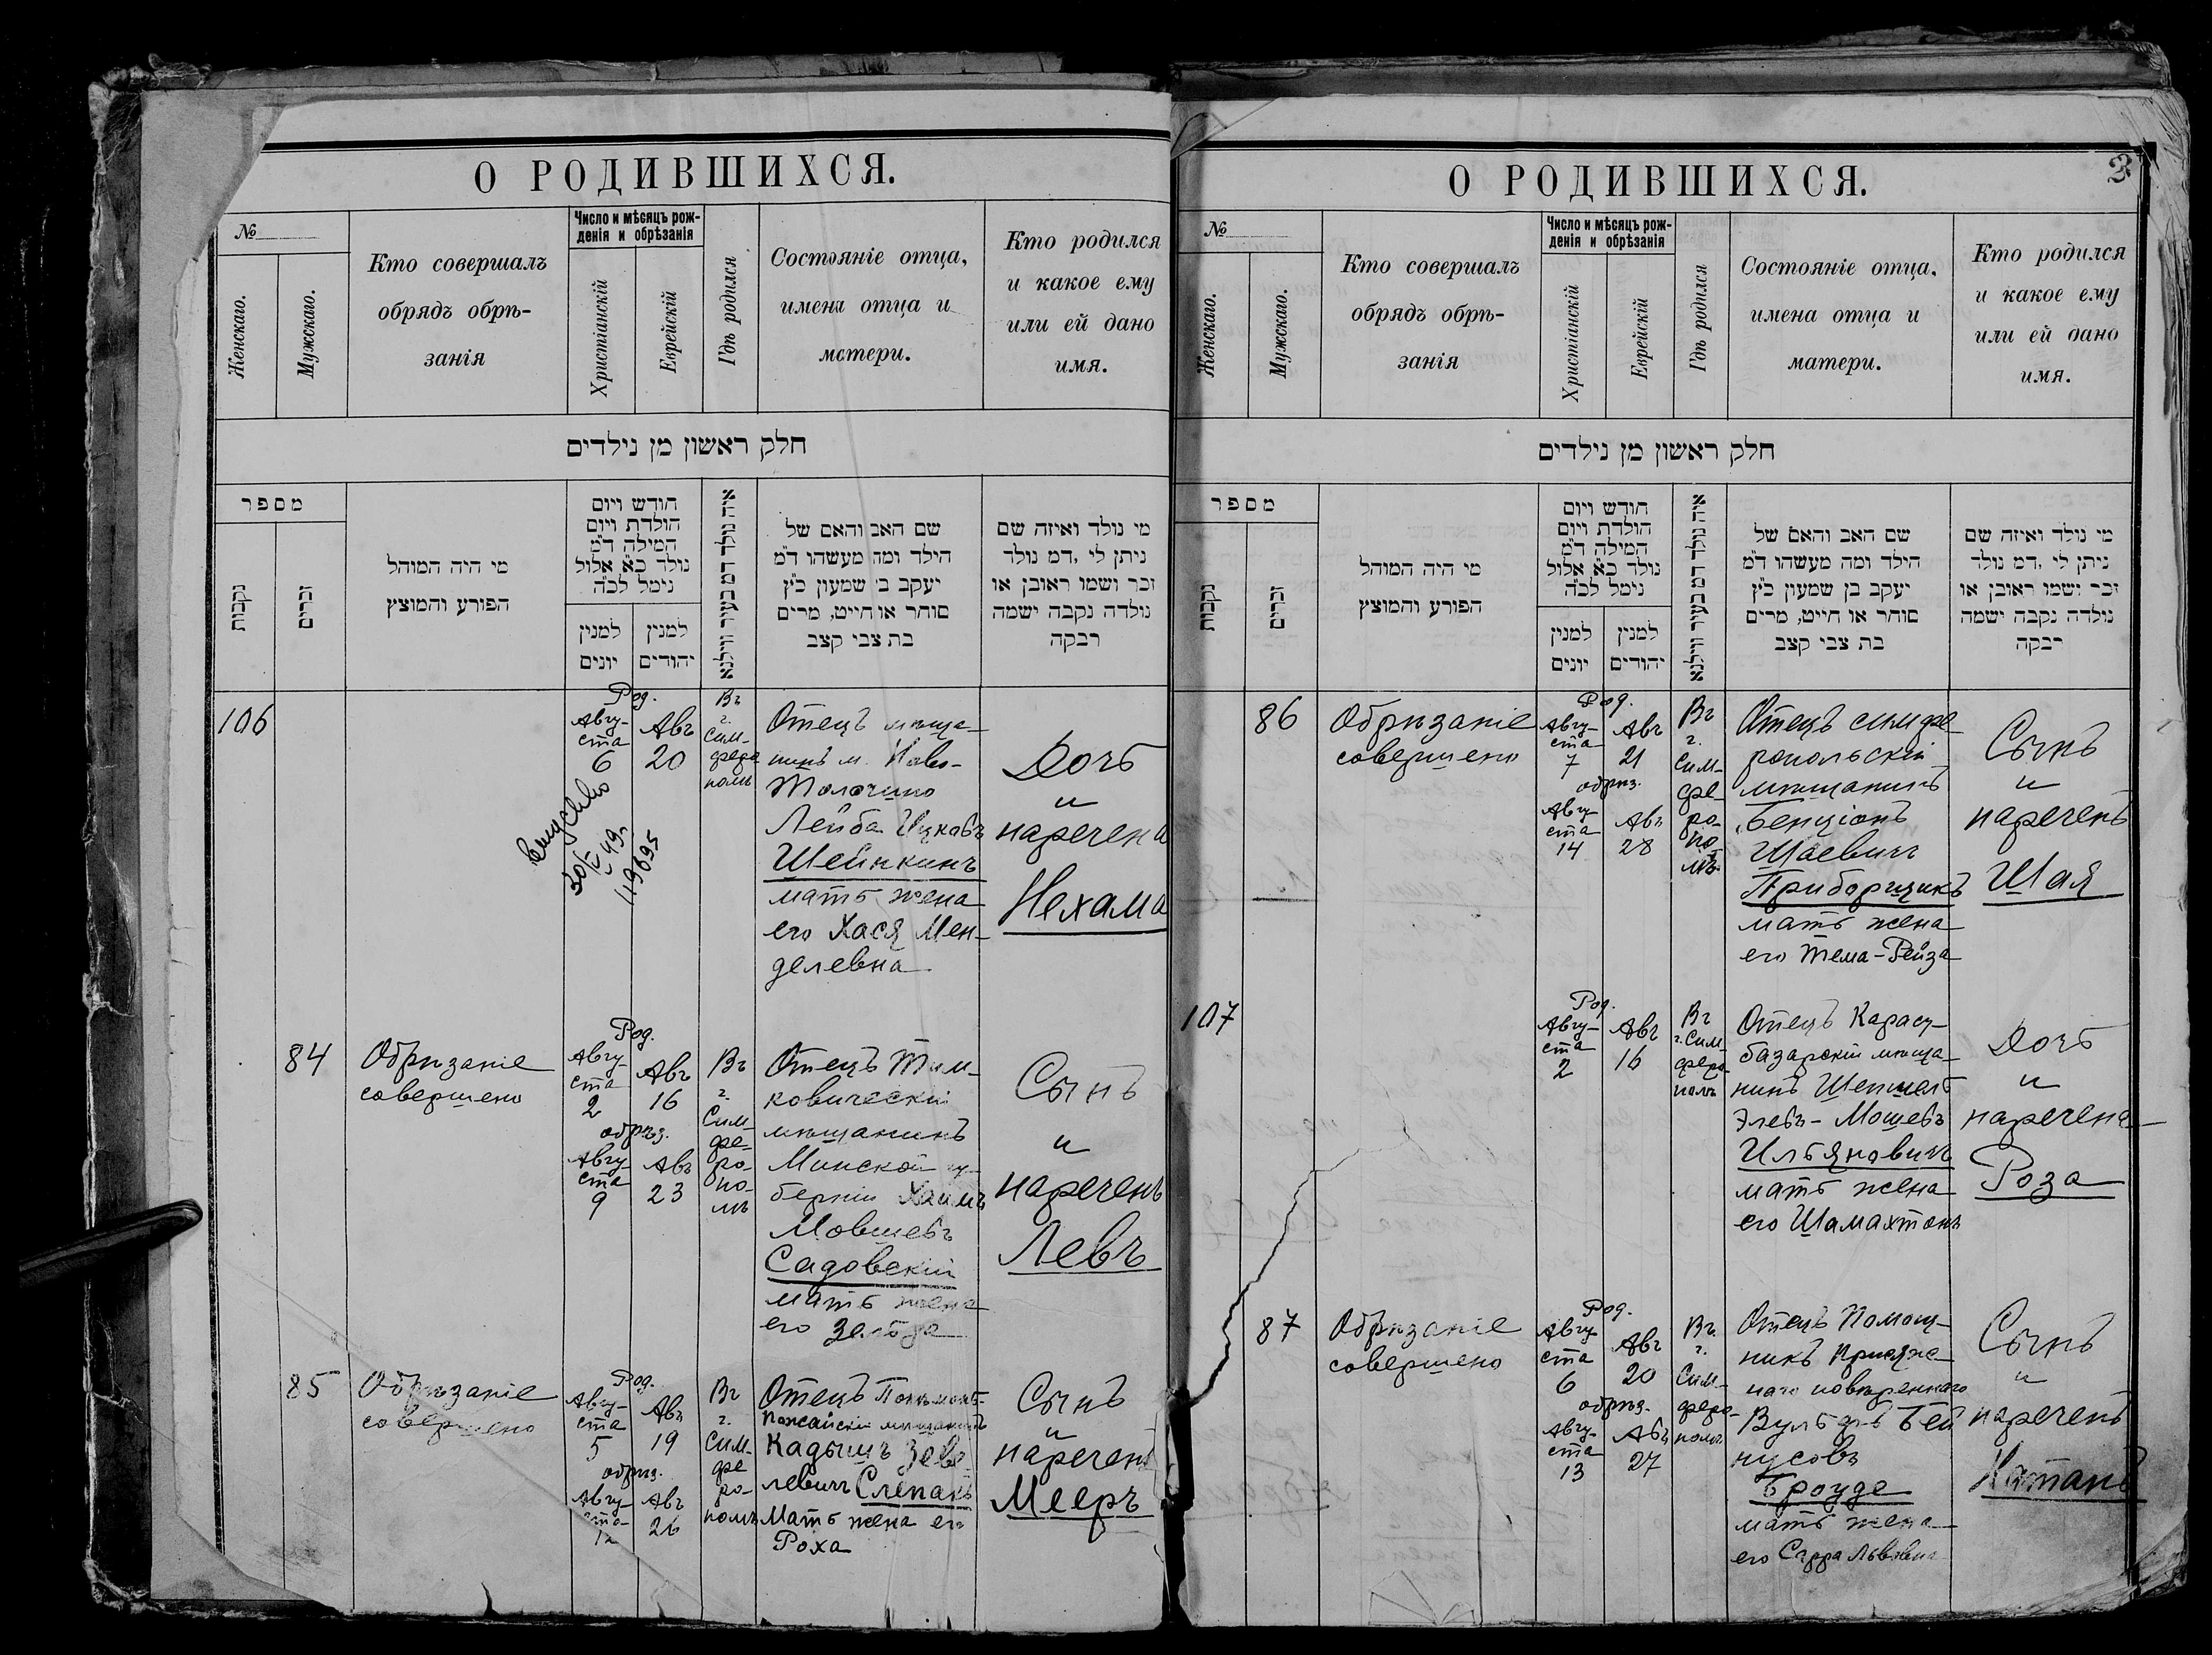 О РОДИВШИХСЯ.
№
Женскаго.
Мужскаго.
Кто совершалъ
обрядъ обрѣ-
занія
Число и мѣсяцъ рож-
денія и обрѣзанія
Христіанскій
Еврейскій
Гдѣ родился
Состояніе отца,
имена отца и
матери.
Кто родился
и какое ему
или ей дано
имя.
חלק ראשון מן נילדים
מספר
נקבות
זכרים
מי היה המוהל
הפורע והמוצץ
חודש ויום
הולדת ויום
המילה ד״מ
נולד כ״א אלול
נימל לכ״ה
למנין
יונים
למנין
יהודים
איה נולד דמ בעיר ווילנא
שם האב והאם של
הילד ומה מעשהו ד״מ
יעקב ב׳ שמעון כ״ץ
סוחר או חייט, מרים
בת צבי קצב
מי נולד ואיזה שם
ניתן לי ,דמ נולד
זכר ושמו ראובן או
נולדה נקבה ישמה
רבקה
106
Род.
Авгу-
ста
6
Авъ
20
Въ
г.
Сим-
феро
полѣ
Отецъ мѣща-
нинъ м. Ново-
Толочино
Лейба Ицковъ
Шейнкинъ
мать жена
его Хася Мен-
делевна
Дочь
и
наречена
Нехама
49г.
119695
84
Обрѣзаніе
совершено
Род.
Авгу-
ста
2
Авъ
16
обрѣз.
Авгу-
ста
9
Авъ
23
Въ
г.
Сим-
фе-
ро-
по-
лѣ
Отецъ Тим-
ковическій
мѣщанинъ
Минской гу-
берніи Хаимъ
Мовшевъ
Садовскій
мать жена
его Зельда
Сынъ
и
нареченъ
Левъ
85
Обрѣзаніе
совершено
Род.
Авгу-
ста
5
Авъ
19
обрѣз.
Авгу-
ста
12
Авъ
26
Въ
г.
Сим-
фе
ро-
полѣ
Отецъ
мѣщанинъ
Кадышъ
левичъ Слепакъ
Мать жена его
Роха
Сынъ
и
нареченъ
Мееръ
О РОДИВШИХСЯ.
3
№
Женскаго.
Мужскаго.
Кто совершалъ
обрядъ обрѣ-
занія
Число и мѣсяцъ рож-
денія и обрѣзанія
Христіанскій
Еврейскій
Гдѣ родился
Состояніе отца,
имена отца и
матери.
Кто родился
и какое ему
или ей дано
имя.
חלק ראשון מן נילדים
מספר
נקבות
זכרים
מי היה המוהל
הפורע והמוצץ
חודש ויום
הולדת ויום
המילה ד״מ
נולד כ״א אלול
נימל לכ״ה
למנין
יונים
למנין
יהודים
איה נולד דמ בעיר ווילנא
שם האב והאם של
הילד ומה מעשהו ד״מ
יעקב בן שמעון כ״ץ
סוחר או חייט, מרים
בת צבי קצב
מי נולד ואיזה שם
ניתן לי ,דמ נולד
זכר ושמו ראובן או
נולדה נקבה ישמה
רבקה
86
Обрѣзаніе
совершено
Род.
Авгу-
ста
7
Авъ
21
обрѣз.
Авгу-
ста
14
Авъ
28
Въ
г.
Сим-
фе-
ро-
по-
лѣ
Отецъ симфе
ропольскій
мѣщанинъ
Бенціонъ
Шаевичъ
Приборщикъ
мать жена
его Тема-Рейза
Сынъ
и
нареченъ
Шая
107
Род.
Авгу-
ста
2
Авъ
16
Въ
г. Сим-
феро-
полѣ
Отецъ Карасу-
базарскій мѣща-
нинъ Шепшель
Элевъ-Мошевъ
Ильяновичъ
мать жена
его Шамахтонъ
Дочь
и
наречена
Роза
87
Обрѣзаніе
совершено
Род.
Авгу-
ста
6
Авъ
20
обрѣз.
Авгу-
ста
13
Авъ
27
Въ
г.
Сим-
феро-
полѣ
Отецъ Помощ-
никъ Присяж-
наго повѣреннаго
Вульфъ Бей
нусовъ
Броуде
мать жена
его Сарра Львовна
Сынъ
и
нареченъ
Натанъ